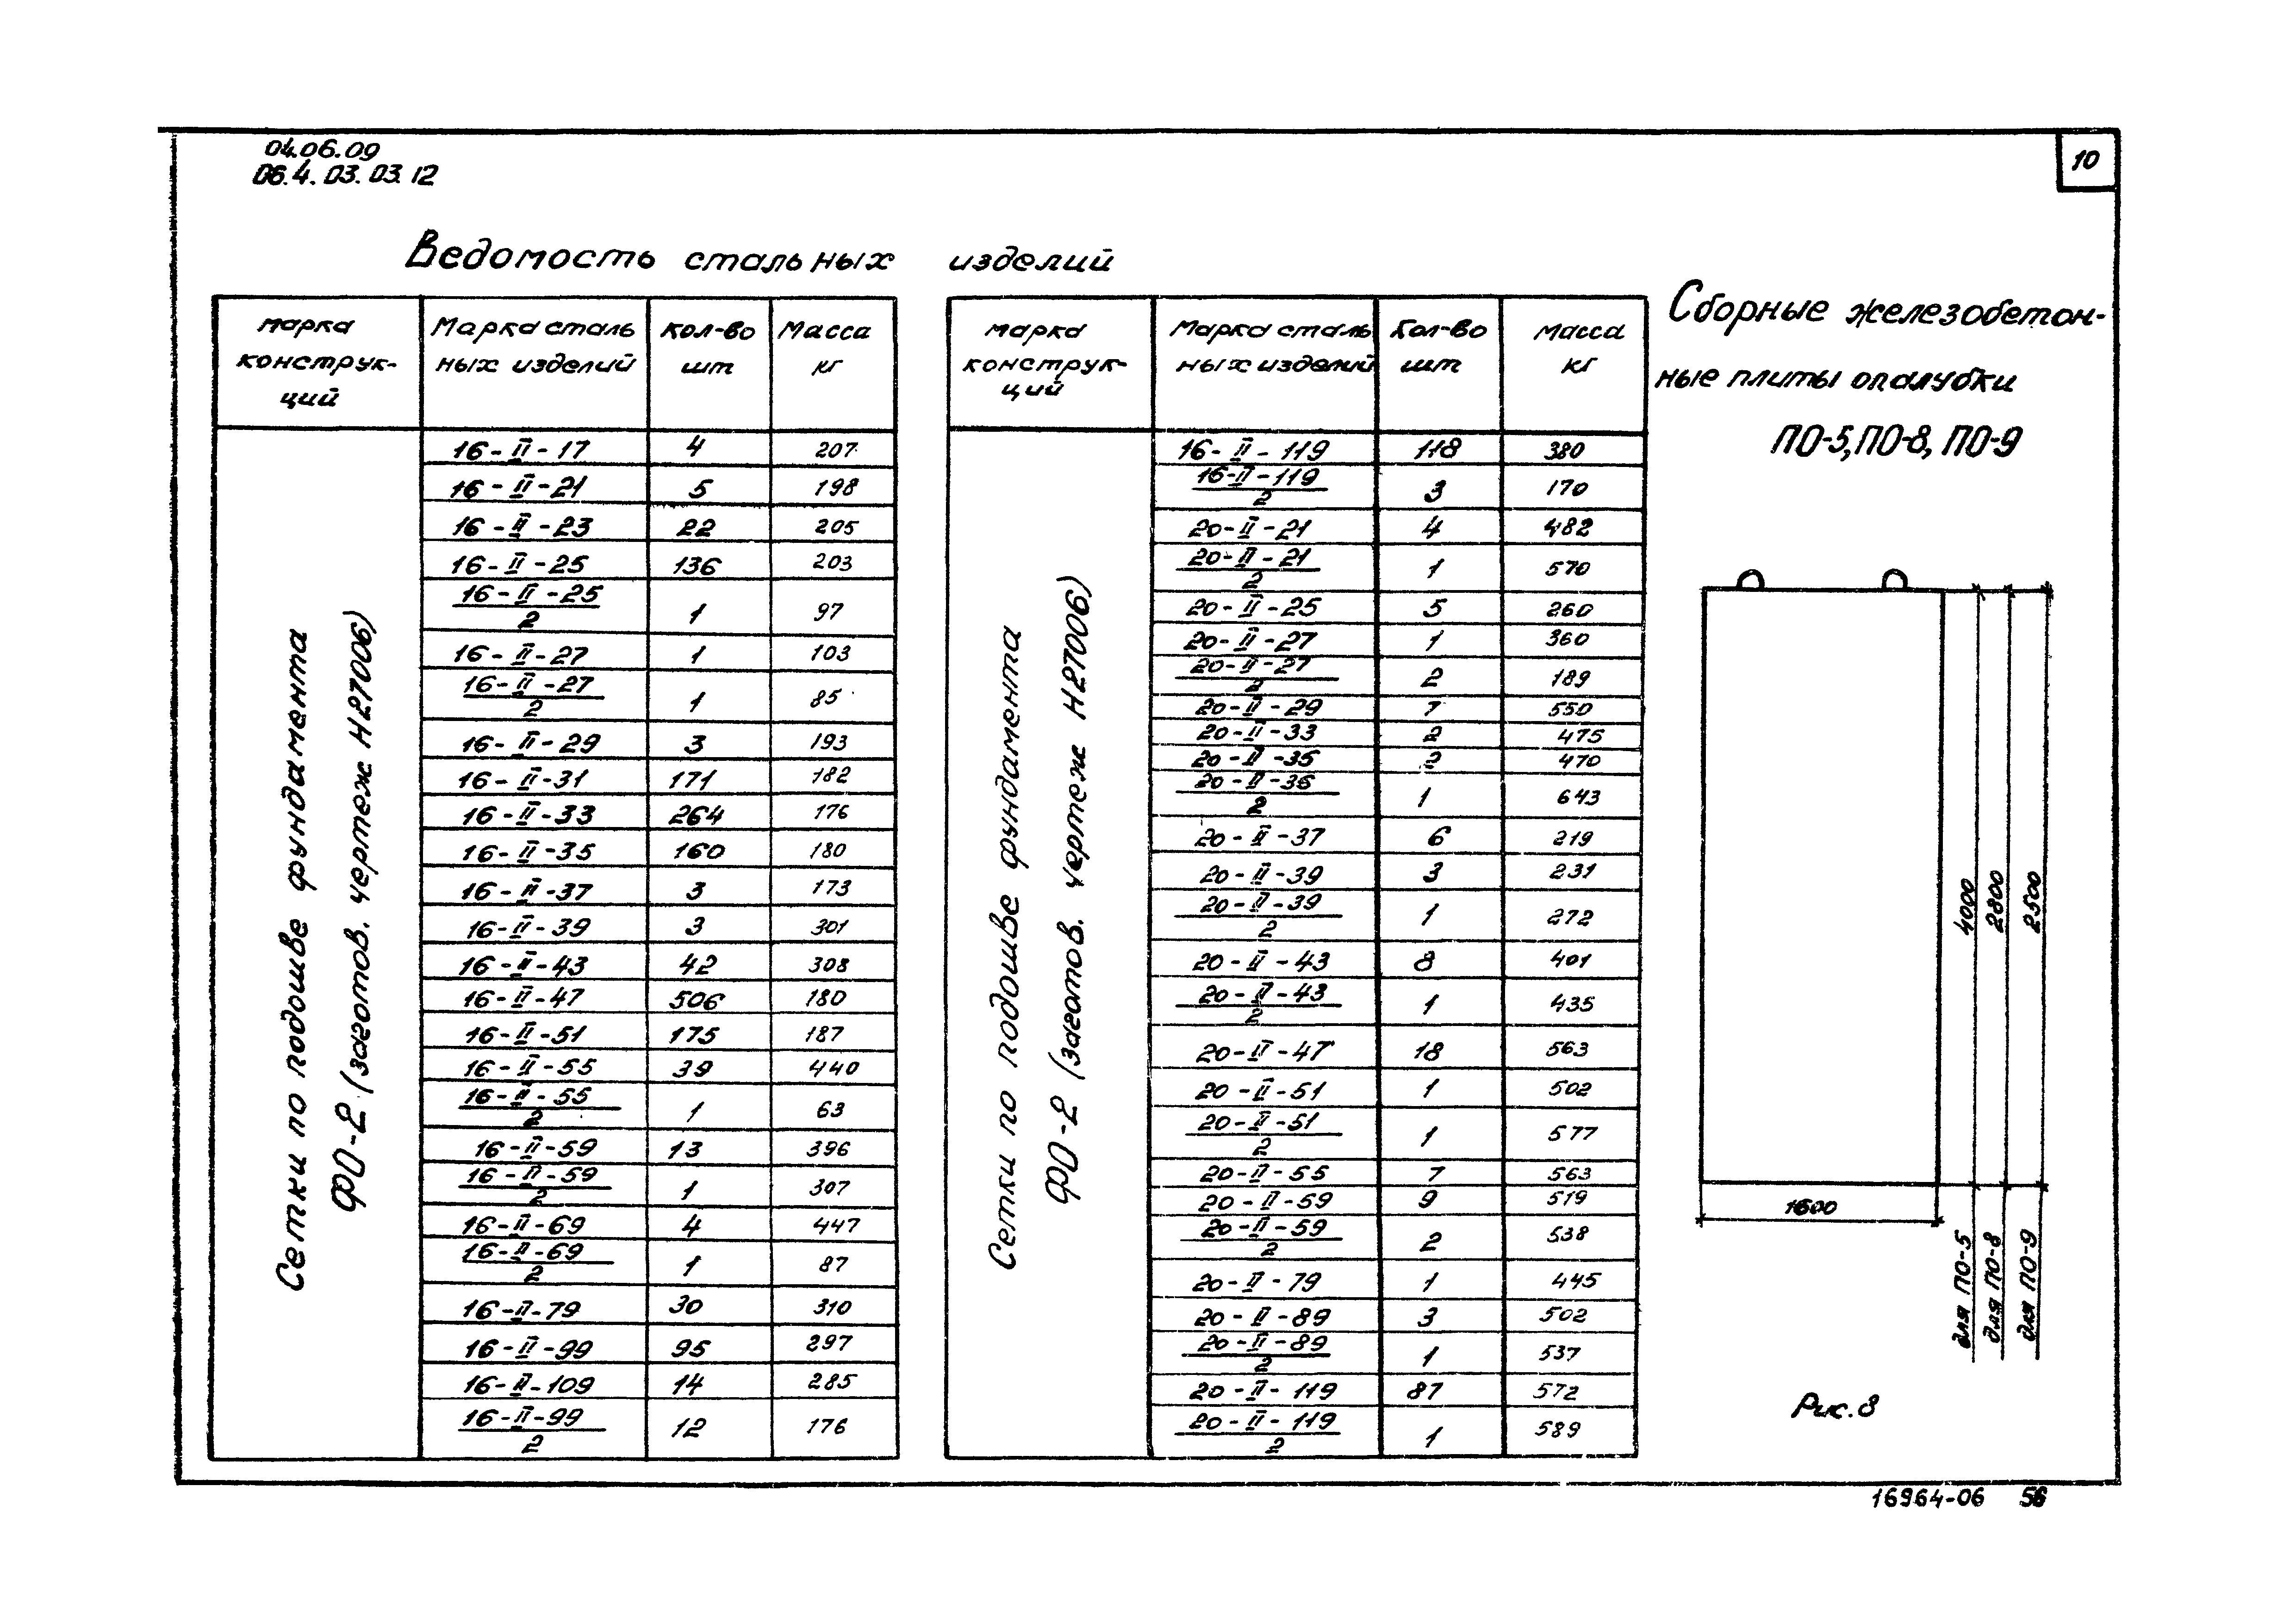 04.06.09
06.4.03.03.12
10
Ведомость стальных изделий
марка конструк-ций | Марка сталь ных изделий | кол-во шт | Масса кг
Сетки по подошве фундамента
ФО-2 (заготов. чертеж Н27006)
16-II-17 4 207
16-II-21 5 198
16-II-23 22 205
16-II-25 136 203
16-II-25/2 1 97
16-II-27 1 103
16-II-27/2 1 85
16-II-29 3 193
16-II-31 171 182
16-II-33 264 176
16-II-35 160 180
16-II-37 3 173
16-II-39 3 301
16-II-43 42 308
16-II-47 506 180
16-II-51 175 187
16-II-55 39 440
16-II-55/2 1 63
16-II-59 13 396
16-II-59/2 1 307
16-II-69 4 447
16-II-69/2 1 87
16-II-79 30 310
16-II-99 95 297
16-II-109 14 285
16-II-99/2 12 176
марка конструк-ций | Марка сталь ных изделий | Кол-во шт | Масса кг
Сетки по подошве фундамента
ФО-2 (заготов. чертеж Н27006)
16-II-119 118 380
16-II-119/2 3 170
20-II-21 4 482
20-II-21/2 1 570
20-II-25 5 260
20-II-27 1 360
20-II-27/2 2 189
20-II-29 7 550
20-II-33 2 475
20-II-35 2 470
20-II-35/2 1 643
20-II-37 6 219
20-II-39 3 231
20-II-39/2 1 272
20-II-43 8 401
20-II-43/2 1 435
20-II-47 18 563
20-II-51 1 502
20-II-51/2 1 577
20-II-55 7 563
20-II-59 9 519
20-II-59/2 2 538
20-II-79 1 445
20-II-89 3 502
20-II-89/2 1 537
20-II-119 87 572
20-II-119/2 1 589
Сборные железобетон-
ные плиты опалубки
ПО-5, ПО-8, ПО-9
4000
2800
2500
1600
для ПО-5
для ПО-8
для ПО-9
Рис. 8
16964-06 56